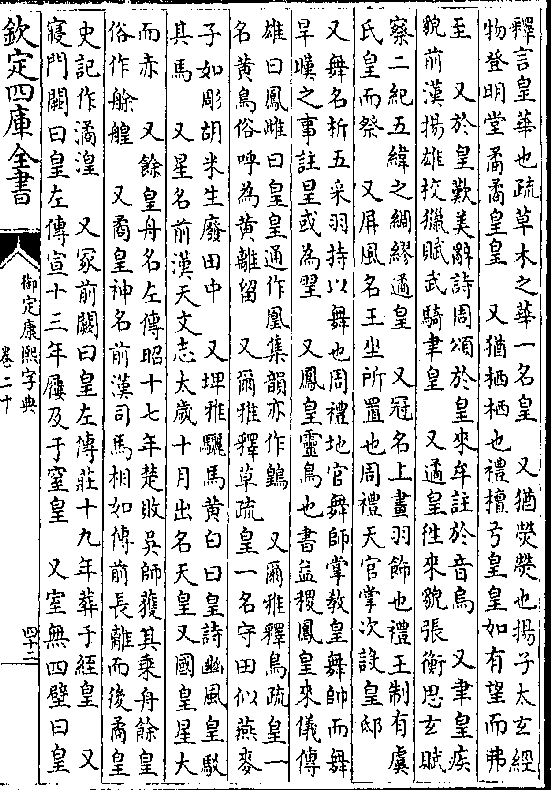 釋言皇華也疏草木之華一名皇　又猶熒熒也揚子太玄經
物登明堂矞矞皇皇　又猶栖栖也禮檀弓皇皇如有望而弗
至　又於皇歎美辭詩周頌於皇來牟註於音烏　又聿皇疾
貌前漢揚雄校獵賦武騎聿皇　又遹皇徃來貌張衡思玄賦
察二紀五緯之綢繆遹皇　又冠名上畫羽飾也禮王制有虞
氏皇而祭　又屏風名王坐所置也周禮天官掌次設皇邸
又舞名析五采羽持以舞也周禮地官舞師掌教皇舞帥而舞
旱暵之事註皇或為䍿　又鳳皇靈鳥也書益稷鳳皇來儀傳
雄曰鳳雌曰皇皇通作凰集韻亦作鶠　又爾雅釋鳥疏皇一
名黄鳥俗呼為黄離留　又爾雅釋草疏皇一名守田似燕麥
子如彫胡米生廢田中　又埤雅驪馬黄白曰皇詩豳風皇駁
其馬　又星名前漢天文志太歲十月出名天皇又國皇星大
而赤　又餘皇舟名左傳昭十七年楚敗吳師獲其乘舟餘皇
俗作艅艎　又矞皇神名前漢司馬相如傳前長離而後矞皇
史記作潏湟　又冢前闕曰皇左傳莊十九年葬于絰皇　又
寢門闕曰皇左傳宣十三年屨及于窒皇　又室無四壁曰皇
欽定四庫全書
御定康熙字典
卷二十
四十二